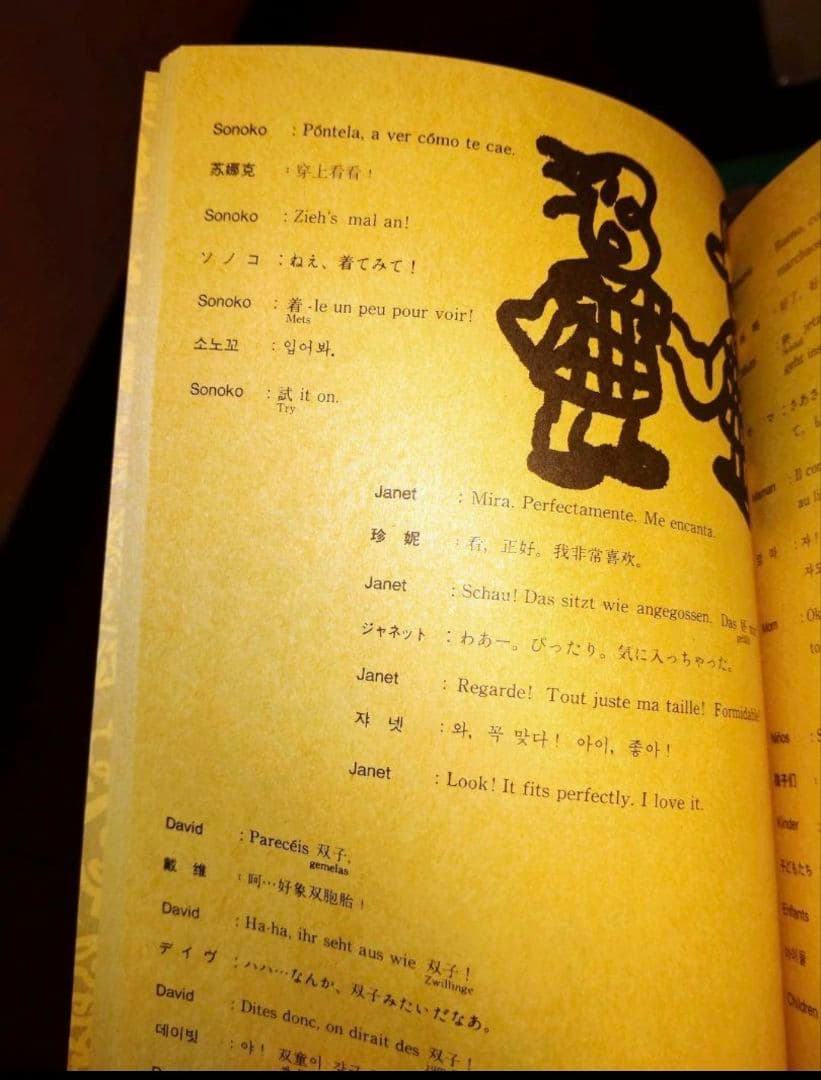 Sonoko : Póntela, a ver cómo te cae.
苏娜克 : 穿上看看！
Sonoko : Zieh's mal an!
ソノコ : ねえ、着てみて！
Sonoko : 着-le un peu pour voir!
Mets
소노꼬 : 입어봐.
Sonoko : 試 it on.
Try
Janet : Mira. Perfectamente. Me encanta.
珍妮 : 看，正好。我非常喜欢。
Janet : Schau! Das sitzt wie angegossen. Das
ジャネット : わあー。ぴったり。気に入っちゃった。
Janet : Regarde! Tout juste ma taille! Formidable!
쟈넷 : 와, 꼭 맞다! 아이, 좋아!
Janet : Look! It fits perfectly. I love it.
David : Parecéis 双子,
gemelas
戴维 : 呵…好象双胞胎！
David : Ha-ha, ihr seht aus wie 双子!
Zwillinge
デイヴ : ハハ…なんか、双子みたいだなあ。
David : Dites donc, on dirait des 双子!
데이빗 : 야! 双童이
Bueno,
marcharos
geht
Il
au
Mom : Ok
to
Niños : S
孩子们
Kinder
子どもたち
Enfants
아이들
Children